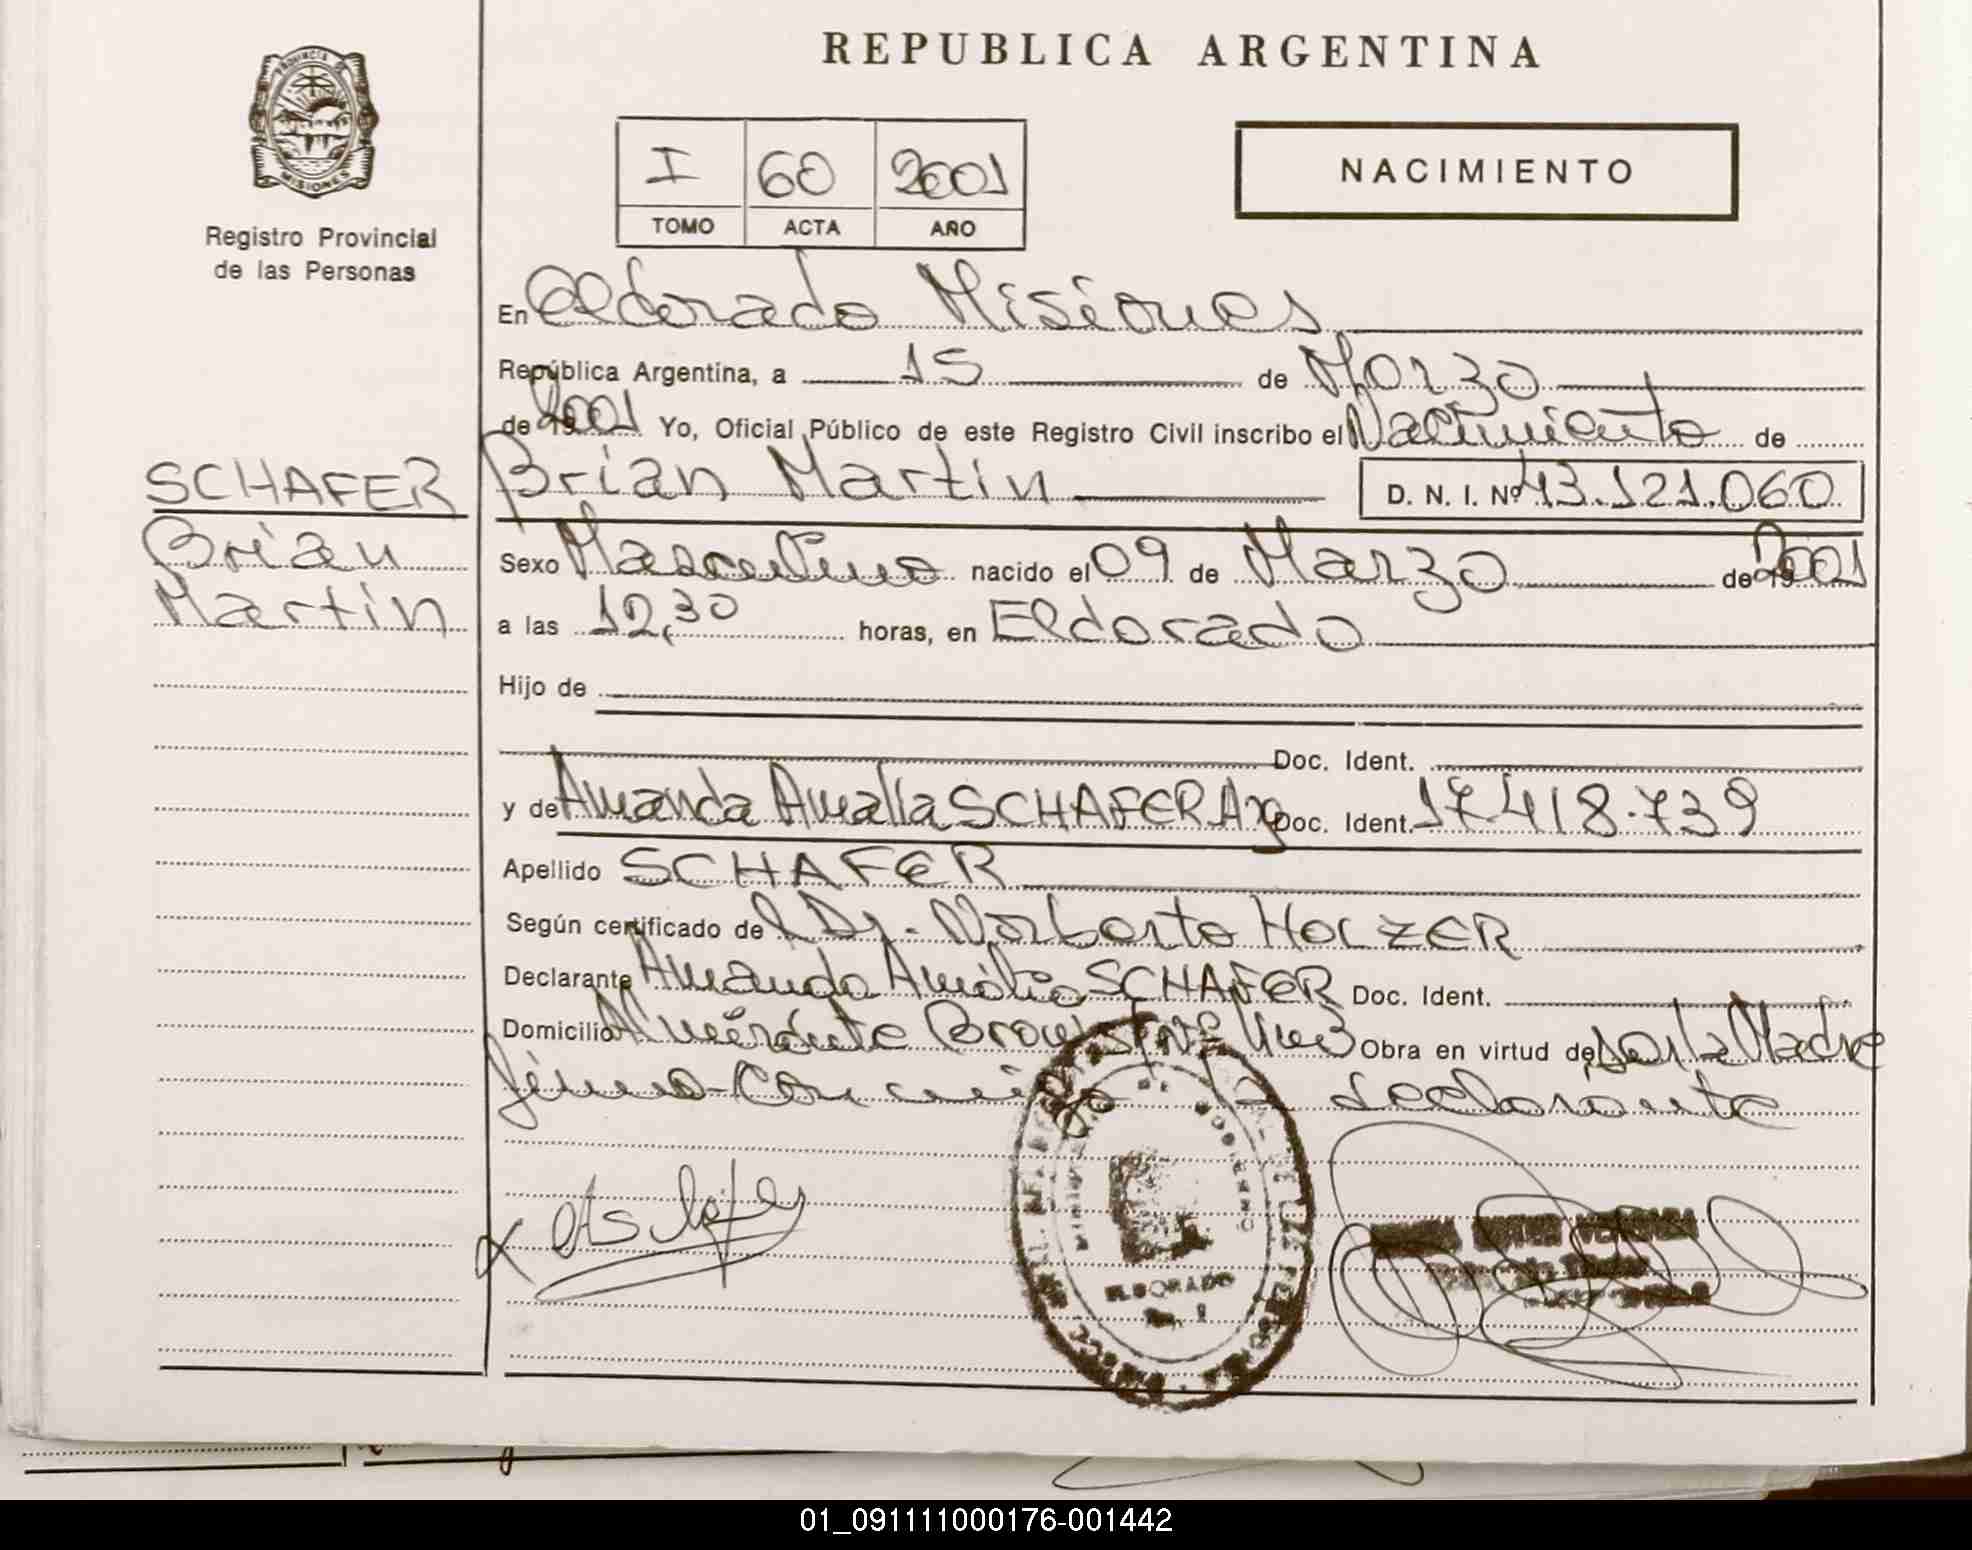 REPUBLICA ARGENTINA
PROVINCIA DE
MISIONES
Registro Provincial
de las Personas
I 60 2001
TOMO ACTA AÑO
NACIMIENTO
En Eldorado Misiones
República Argentina, a 15 de Marzo
de 2001 Yo, Oficial Público de este Registro Civil inscribo el Nacimiento de
SCHAFER
Brian
Martin
Brian Martin D. N. I. Nº 43.121.060
Sexo Masculino nacido el 09 de Marzo de 2001
a las 12,30 horas, en Eldorado
Hijo de
Doc. Ident.
y de Amanda Amalia SCHAFER Arg Doc. Ident. 17418.739
Apellido SCHAFER
Según certificado de Dr. Norberto HOLZER
Declarante Amanda Amalia SCHAFER Doc. Ident.
Domicilio Almirante Brown S/Nº Obra en virtud de ser la Madre
firma conmigo la declarante
ELDORADO
01_091111000176-001442